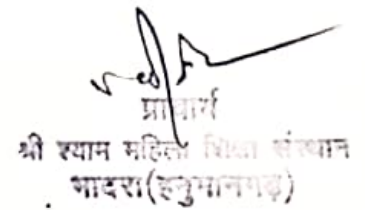 प्राचार्य
श्री श्याम महिला शिक्षा संस्थान
भादरा(हनुमानगढ़)